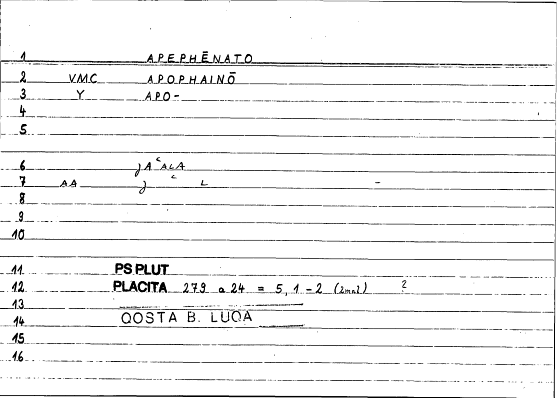 1 APEPHĒNATO
2 VMC APOPHAINŌ
3 Y APO-
4
5
6 ǧAʿALA
7 AA ǧ ʿ L -
8
9
10
11 PS PLUT
12 PLACITA 279 a 24 = 5, 1-2 (2mal) ?
13
14 QOSTA B. LUQA
15
16